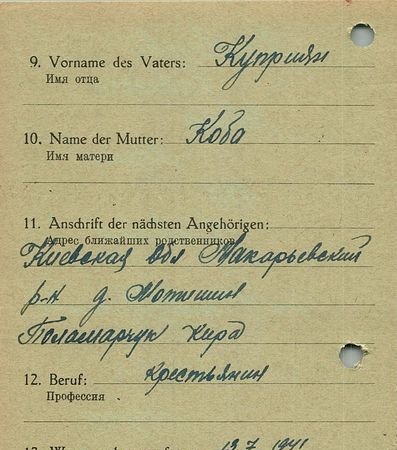 9. Vorname des Vaters: Куприян
Имя отца
10. Name der Mutter: Коба
Имя матери
11. Anschrift der nächsten Angehörigen:
Адрес ближайших родственников
Киевская обл Макарьевский
р-н д. Мотишин
Поламарчук Кира
12. Beruf: Крестьянин
Профессия
13.7.1941